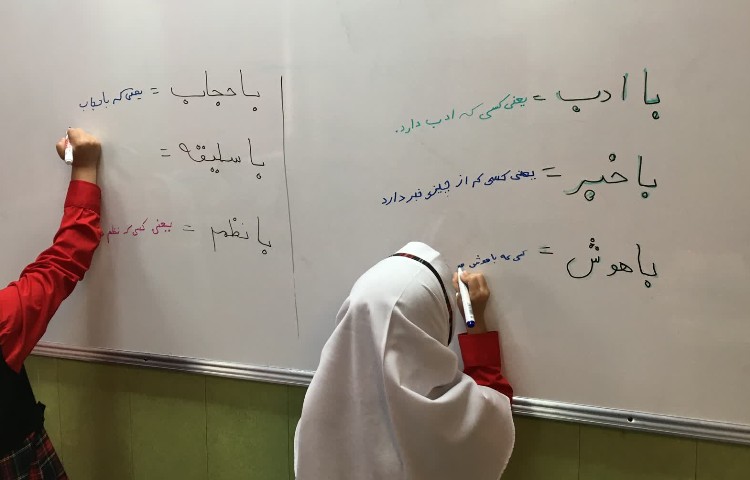 با ادب = یعنی کسی که ادب دارد.
با خبر = یعنی کسی که از چیزی خبر دارد
با هوش = کسی که باهوش
با حجاب = یعنی که با حجاب
با سلیقه =
با نظم = یعنی کسی که نظم